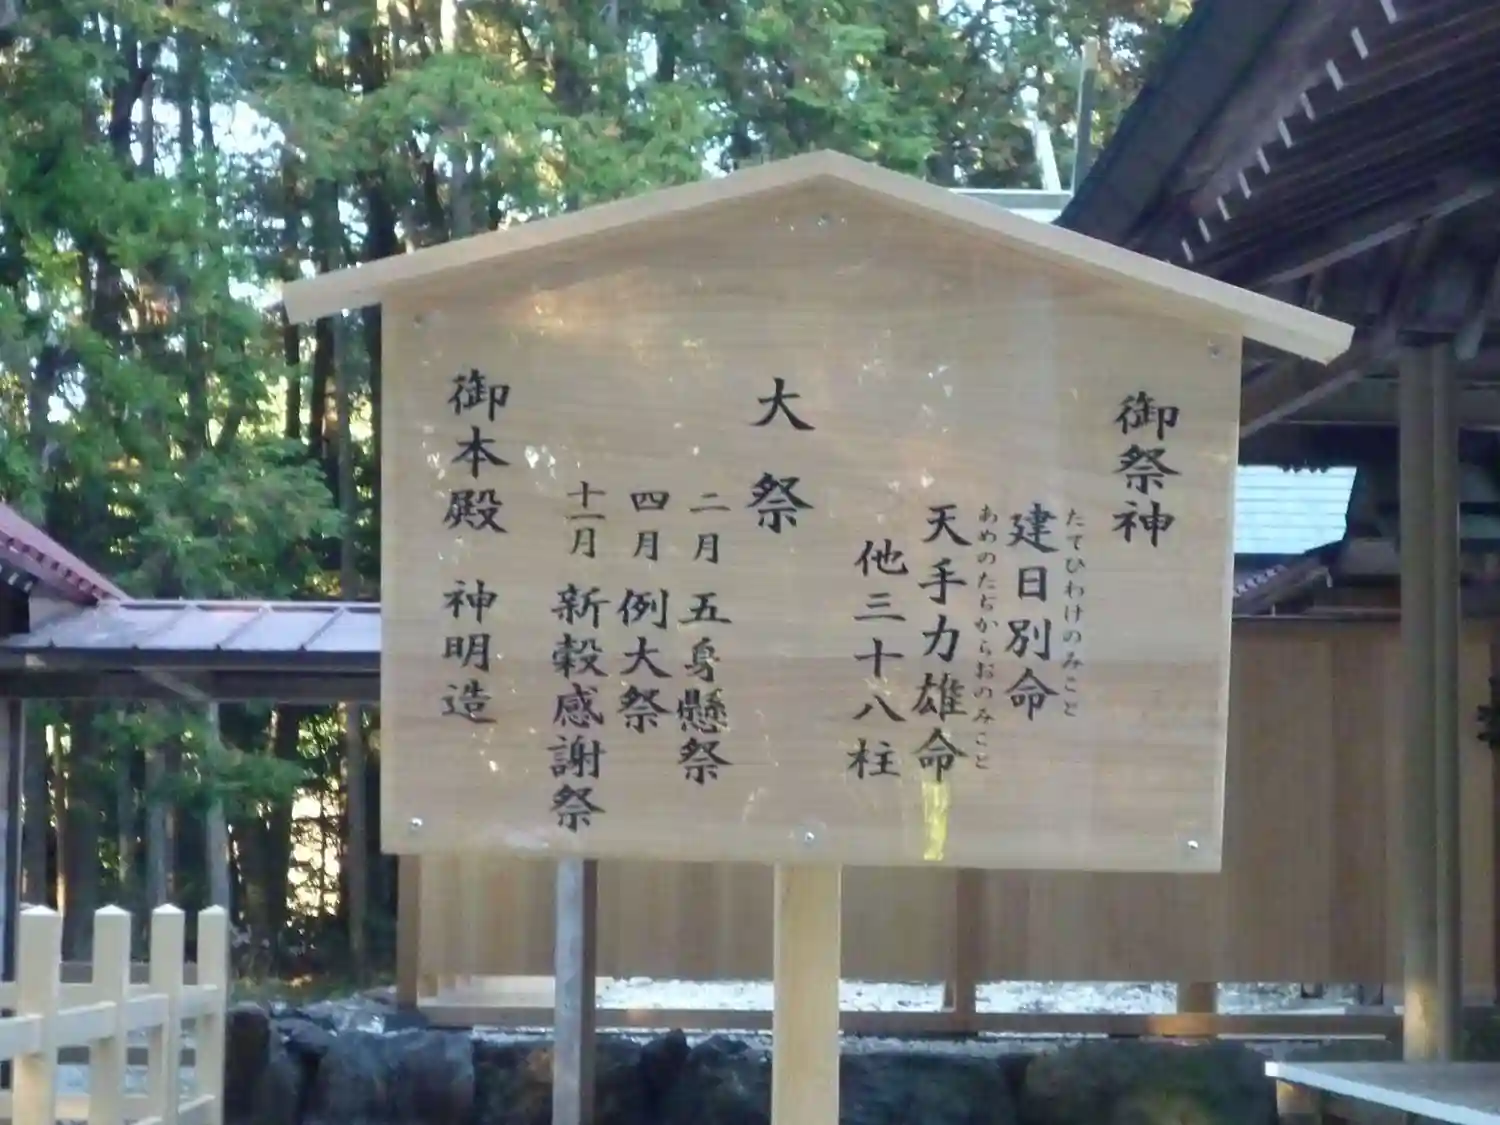 御祭神
たてひわけのみこと
建日別命
あめのたぢからおのみこと
天手力雄命
他三十八柱
大祭
二月 五身懸祭
四月 例大祭
十一月 新穀感謝祭
御本殿 神明造